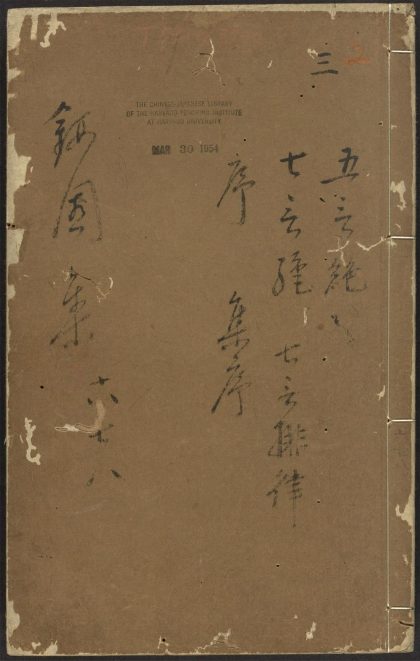 三
2
五言絶
七言絶 七言排律
序 集序
THE CHINESE-JAPANESE LIBRARY
OF THE HARVARD-YENCHING INSTITUTE
AT HARVARD UNIVERSITY
MAR 30 1954
園集 六七八